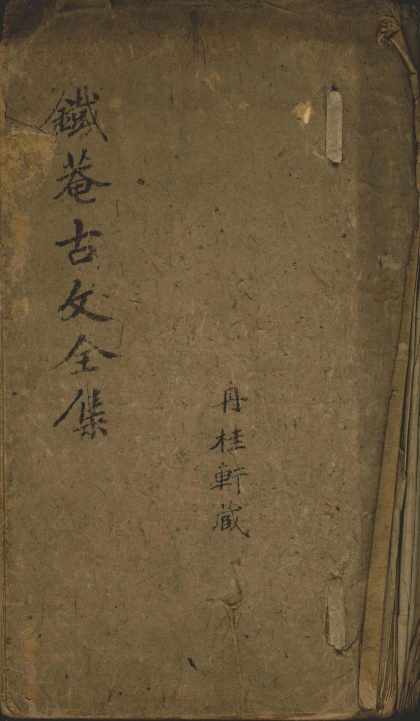 鐵菴古文全集
丹桂軒藏